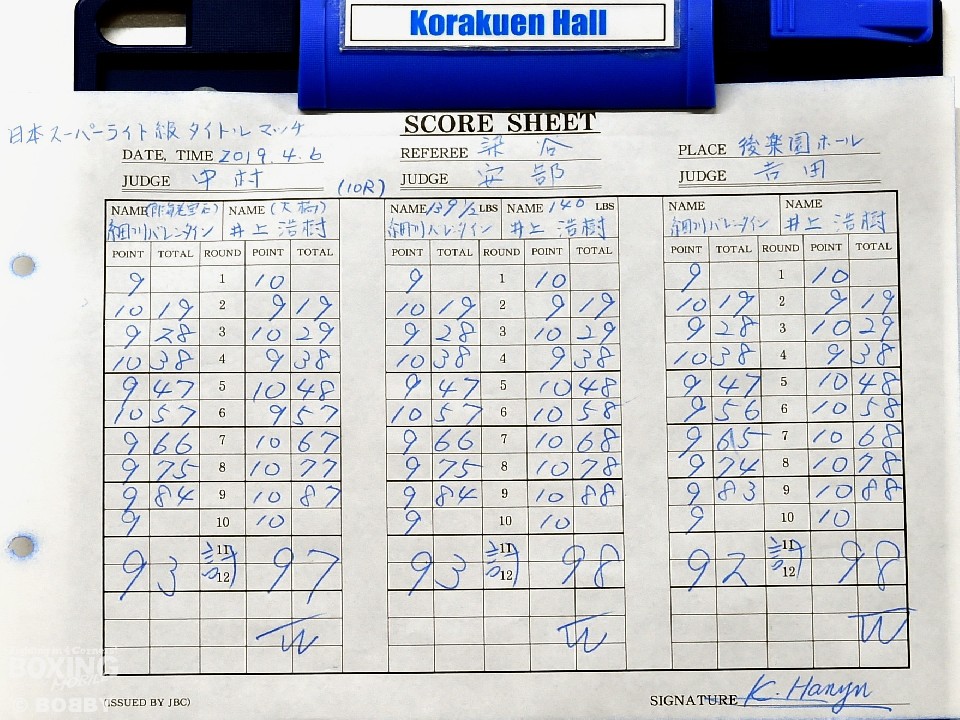 Korakuen Hall
日本スーパーライト級タイトルマッチ
SCORE SHEET
DATE, TIME 2019.4.6 REFEREE PLACE 後楽園ホール
JUDGE 中村 (10R) JUDGE 安部 JUDGE 吉田
NAME NAME (大橋) NAME 139 1/2 LBS NAME 140 LBS NAME NAME
細川バレンタイン 井上浩樹 細川バレンタイン 井上浩樹 細川バレンタイン 井上浩樹
POINT TOTAL ROUND POINT TOTAL POINT TOTAL ROUND POINT TOTAL POINT TOTAL ROUND POINT TOTAL
9 1 10 9 1 10 9 1 10
10 19 2 9 19 10 19 2 9 19 10 19 2 9 19
9 28 3 10 29 9 28 3 10 29 9 28 3 10 29
10 38 4 9 38 10 38 4 9 38 10 38 4 9 38
9 47 5 10 48 9 47 5 10 48 9 47 5 10 48
10 57 6 9 57 10 57 6 10 58 9 56 6 10 58
9 66 7 10 67 9 66 7 10 68 9 65 7 10 68
9 75 8 10 77 9 75 8 10 78 9 74 8 10 78
9 84 9 10 87 9 84 9 10 88 9 83 9 10 88
9 10 10 9 10 10 9 10 10
11 11 11
93 計 97 93 計 98 92 計 98
12 12 12
W W W
BOXING
© BOBBY
(ISSUED BY JBC) SIGNATURE K. Hanyu